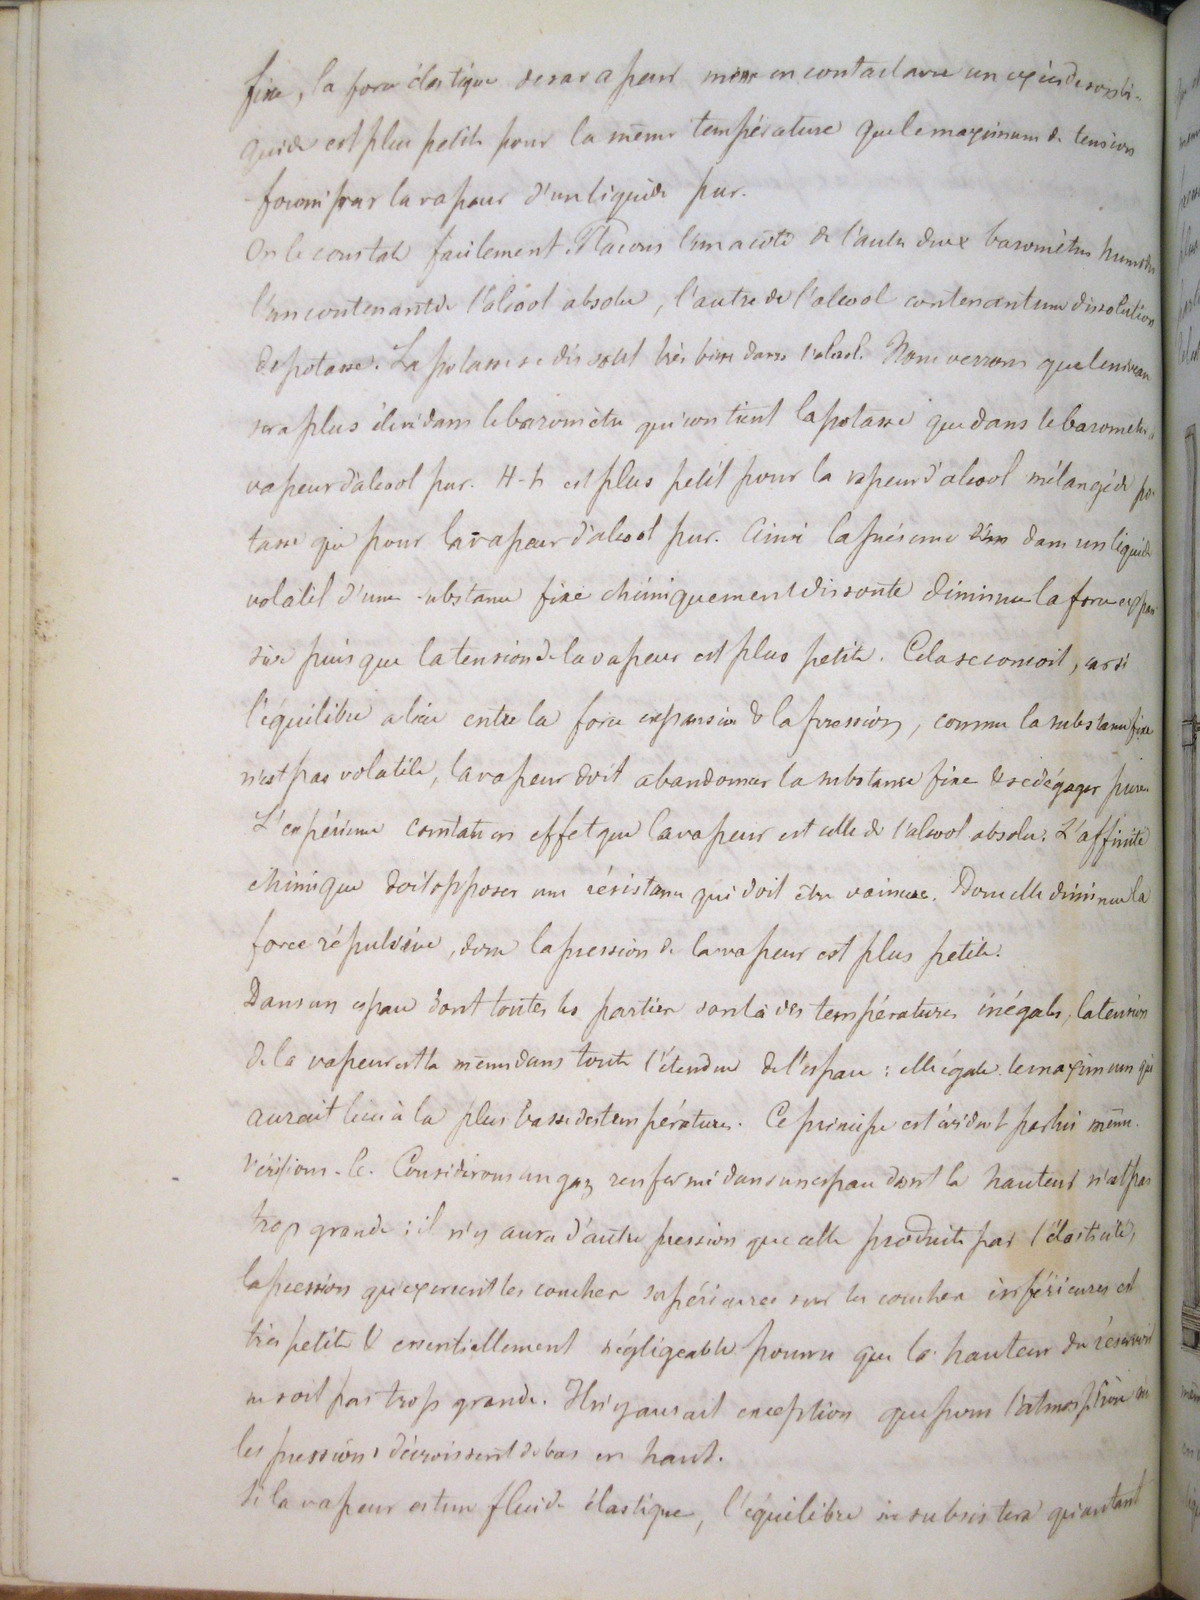 fixe, la force élastique de sa vapeur mise en contact avec un excès de son li-
quide est plus petite pour la même température que le maximum de tension
fourni par la vapeur d'un liquide pur.
On le constate facilement. Placons l'un à côté de l'autre deux baromètres humides
l'un contenant de l'alcool absolu, l'autre de l'alcool contenant une dissolution
de potasse. La potasse se dissout très bien dans l'alcool. Nous verrons que le niveau
sera plus élevé dans le baromètre qui contient la potasse que dans le baromètre à
vapeur d'alcool pur. H-h est plus petit pour la vapeur d'alcool mélangé de po-
tasse que pour la vapeur d'alcool pur. Ainsi la présence dans un liquide
volatil d'une substance fixe chimiquement dissoute diminue la force expan
sive puisque la tension de la vapeur est plus petite. Cela se concoit, car si
l'équilibre a lieu entre la force expansive & la pression, comme la substance fixe
n'est pas volatile, la vapeur doit abandonner la substance fixe & se dégager pure.
L'expérience constate en effet que la vapeur est celle de l'alcool absolu. L'affinité
chimique doit opposer une résistance qui doit être vaincue. Donc elle diminue la
force répulsive, donc la pression de la vapeur est plus petite.
Dans un espace dont toutes les parties sont à des températures inégales, la tension
de la vapeur est la même dans toute l'étendue de l'espace : elle égale le maximum qui
aurait lieu à la plus basse des températures. Ce principe est évident par lui même.
Vérifions-le. Considérons un gaz renfermé dans un espace dont la hauteur n'est pas
trop grande : il n'y aura d'autre pression que celle produite par l'élasticité,
la pression qu'exercent les couches supérieures sur les couches inférieures est
très petite & essentiellement négligeable pourvu que la hauteur du réservoir
ne soit pas trop grande. Il n'y aurait exception que pour l'atmosphère où
les pressions décroissent de bas en haut.
Si la vapeur est un fluide élastique, l'équilibre ne subsistera qu'autant